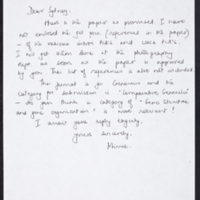 Dear Sydney,
Here is the paper as promised. I have
not enclosed the gel pics (referenced in the paper)
- of the various clover DNA's and
I will get them done at the photography
dept. as soon as the paper is approved
by you. The list of references is also not included.
The journal is for Genomics and the
category for submission is "Comparative Genomics"
- do you think a category of "Gene Structure
and gene organisation" is more relevant?
I await your reply eagerly.
Yours sincerely,
Minnie.